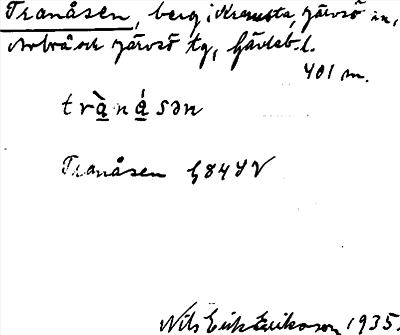 Tranåsen, berg i Kramsta, Järvsö sn,
Arbrå och Järvsö tg, Gävleb. l.
401 m.
trànásən
Tranåsen G84SV
Nils Erik Eriksson 1935.